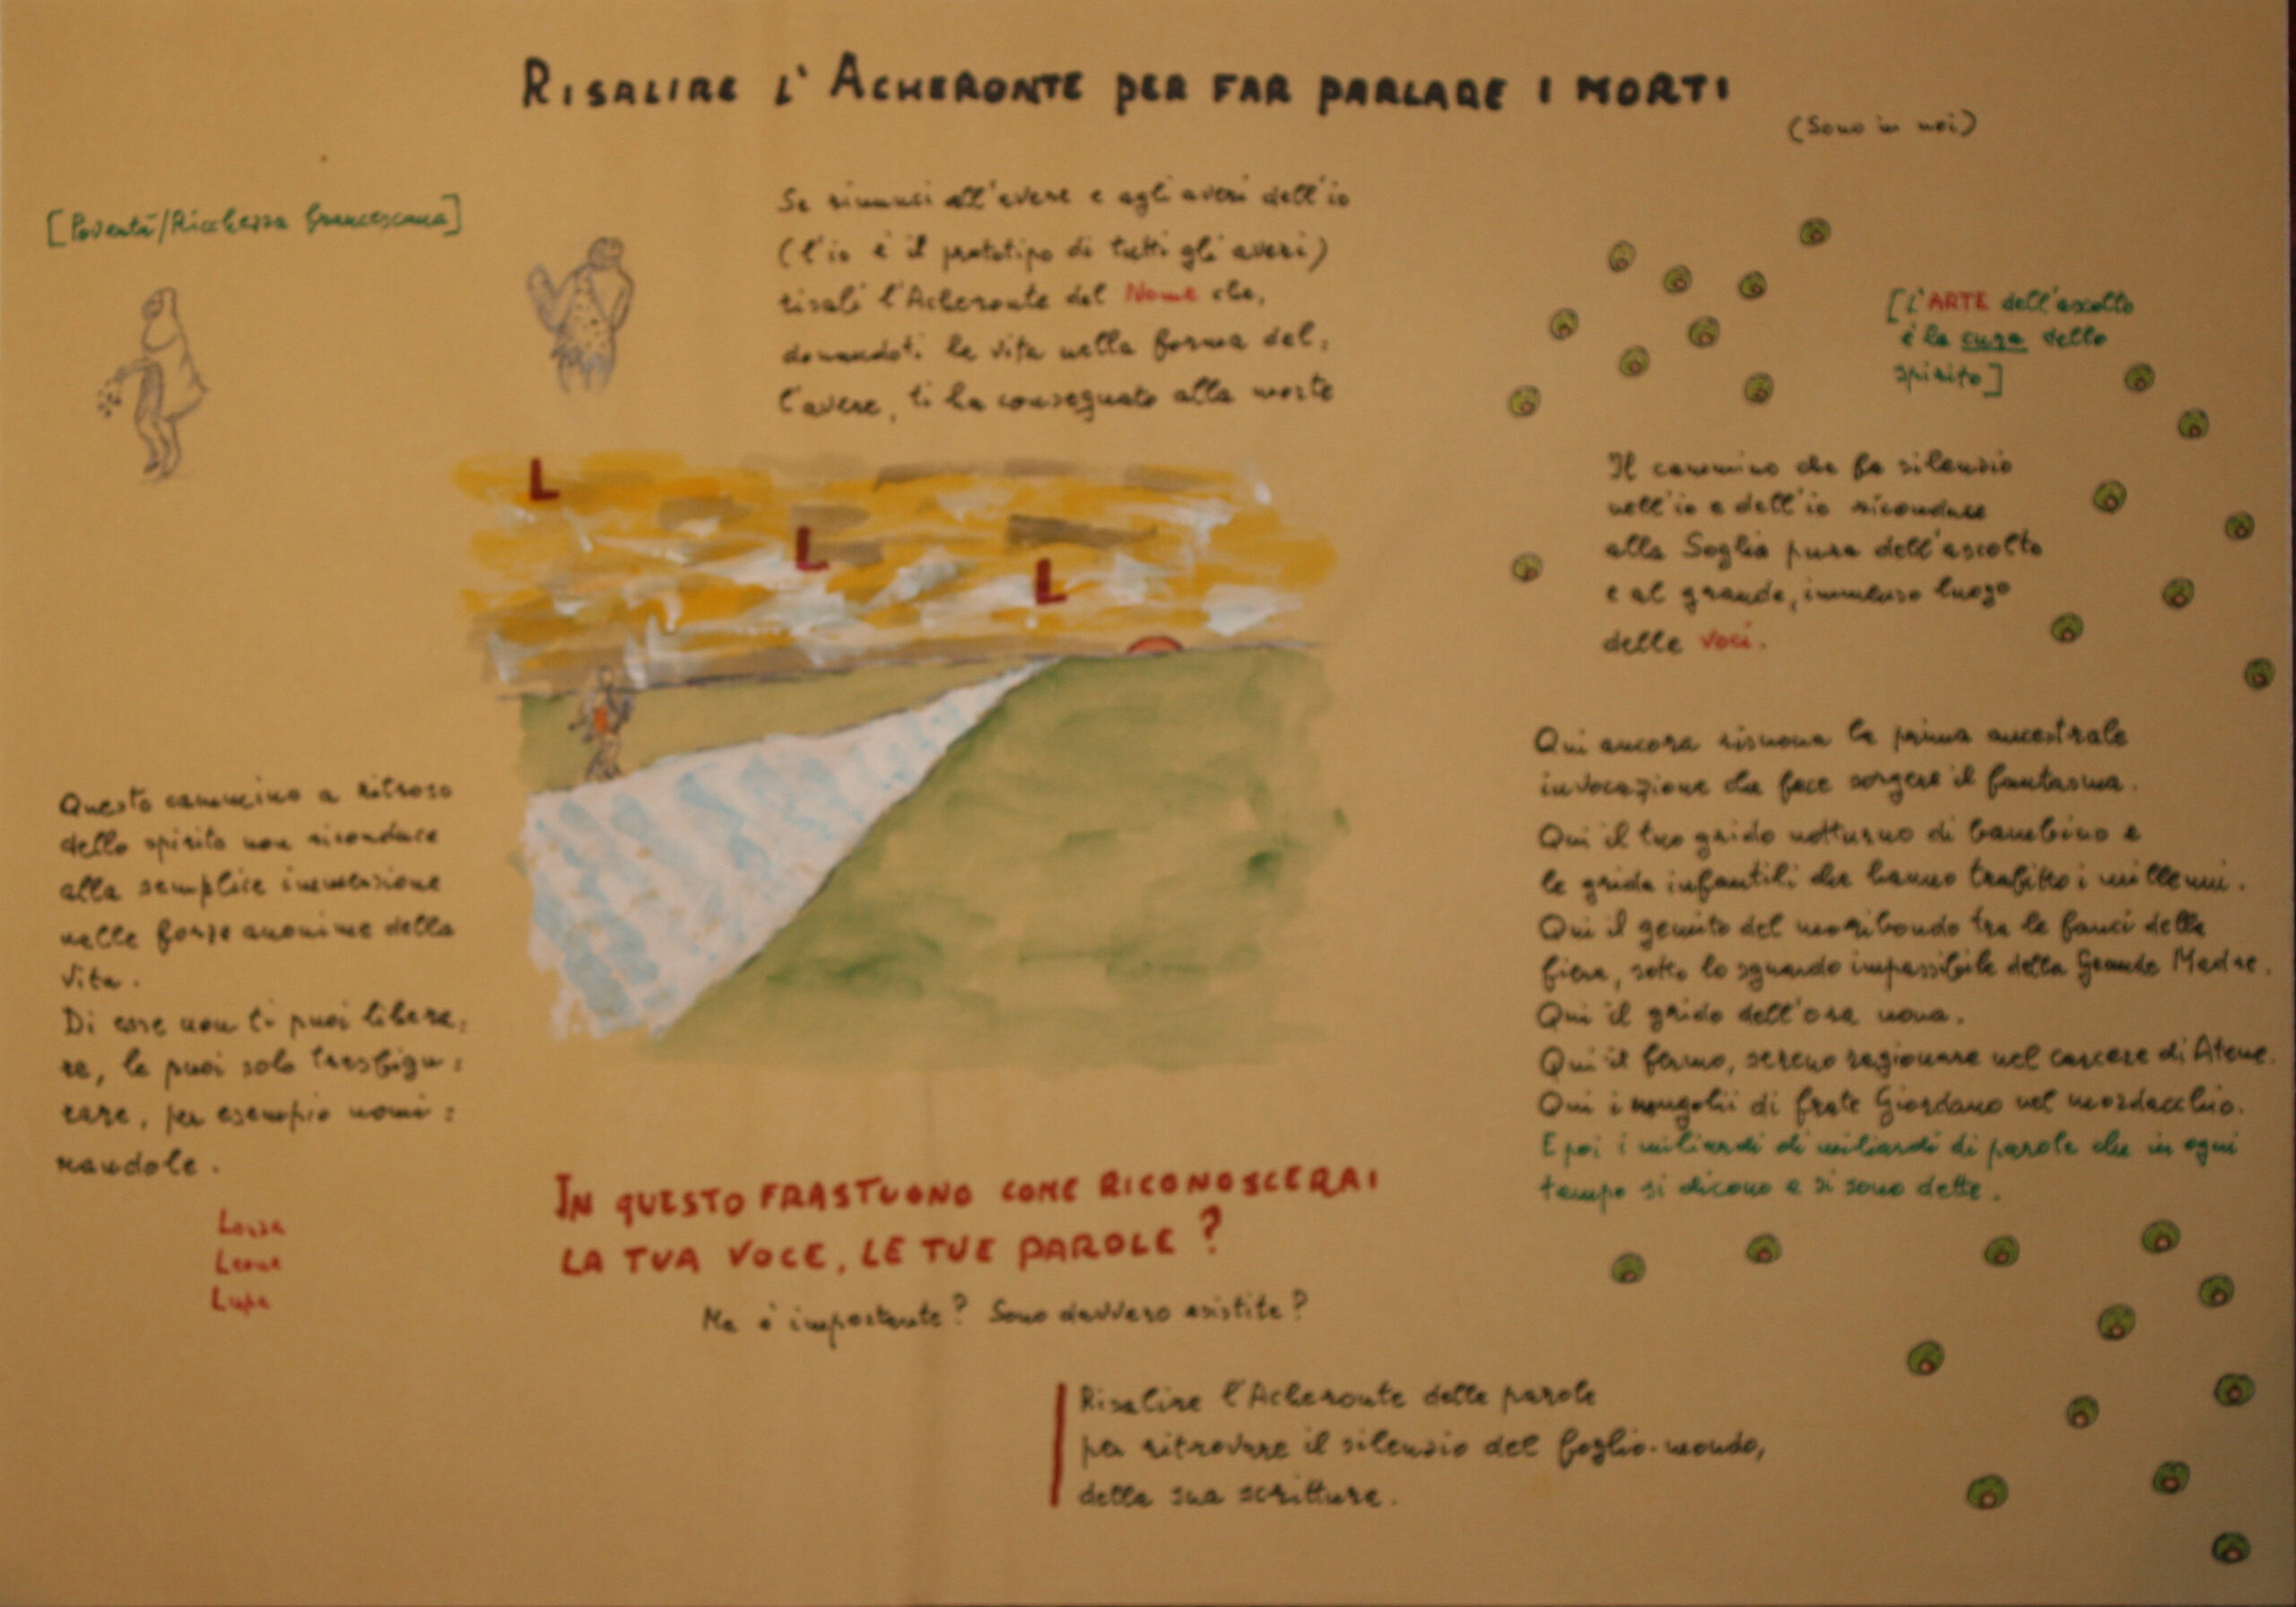 RISALIRE L'ACHERONTE PER FAR PARLARE I MORTI
(Sono in noi)
[Povertà/Ricchezza francescana]
Se rinunci all'avere e agli averi dell'io
(l'io è il prototipo di tutti gli averi)
risali l'Acheronte del Nome che,
donandoti la vita nella forma del=
l'avere, ti ha consegnato alla morte
[L'ARTE dell'ascolto
è la cura dello
spirito]
L
L
L
Il cammino che fa silenzio
nell'io e dell'io riconduce
alla Soglia pura dell'ascolto
e al grande, immenso luogo
delle Voci.
Questo cammino a ritroso
dello spirito non riconduce
alla semplice immersione
nelle forze anonime della
vita.
Di esse non ti puoi libera=
re, le puoi solo trasfigu=
rare, per esempio nomi=
nandole.
Lonza
Leone
Lupa
Qui ancora risuona la prima ancestrale
invocazione che fece sorgere il fantasma.
Qui il tuo grido notturno di bambino e
le grida infantili che hanno trafitto i millenni.
Qui il gemito del moribondo tra le fauci della
fiera, sotto lo sguardo impassibile della Grande Madre.
Qui il grido dell'ora nona.
Qui il fermo, sereno ragionare nel carcere di Atene.
Qui i mugolii di frate Giordano nel mordacchio.
E poi i miliardi di miliardi di parole che in ogni
tempo si dicono e si sono dette.
IN QUESTO FRASTUONO COME RICONOSCERAI
LA TUA VOCE, LE TUE PAROLE?
Ma è importante? Sono davvero esistite?
Risalire l'Acheronte delle parole
per ritrovare il silenzio del foglio-mondo,
della sua scrittura.